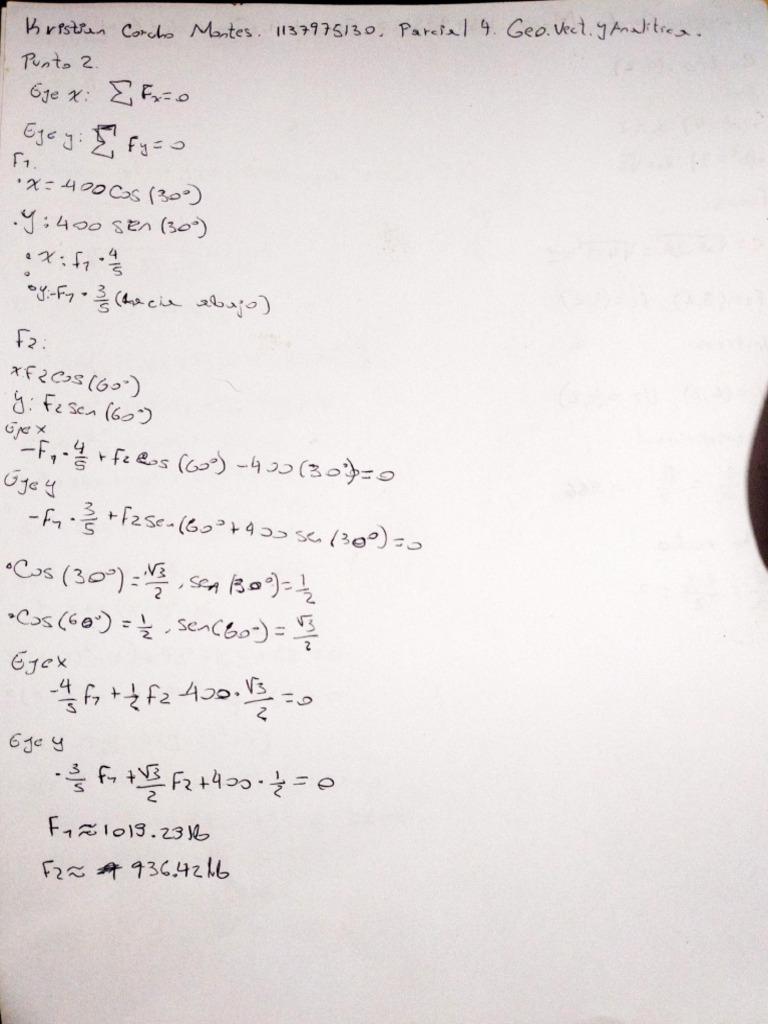 Kristian Corcho Montes. 1137975130. Parcial 4. Geo. Vect. y Analitica.
Punto 2.
Eje x: ∑ Fx=0
Eje y: ∑ Fy=0
F1.
·x=-400Cos(30°)
·y:400 sen(30°)
·x: F1·4/5
·y:-F1·3/5 (hacia abajo)
F2:
xF2Cos(60°)
y: F2sen(60°)
Eje x
-F1·4/5 + F2 cos (60°) -400(30°)=0
Eje y
-F1·3/5 + F2sen(60°+400 sen (30°)=0
·Cos (30°)=√3/2, sen (30°)=1/2
·Cos(60°)=1/2, sen(60°)=√3/2
Eje x
-4/5 F1 + 1/2 F2 -400·√3/2=0
Eje y
-3/5 F1 + √3/2 F2+400·1/2=0
F1≈1019.23lb
F2≈ 936.42lb